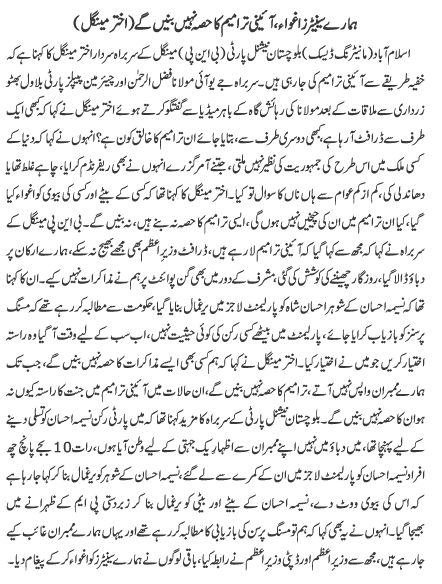 ہمارے سینیٹرز اغواء، آئینی ترامیم کا حصہ نہیں بنیں گے (اختر مینگل)
اسلام آباد (مانیٹرنگ ڈیسک) بلوچستان نیشنل پارٹی (بی این پی) مینگل کے سربراہ سردار اختر مینگل کا کہنا ہے کہ
خفیہ طریقے سے آئینی ترامیم کی جارہی ہیں۔ سربراہ جے یو آئی مولانا فضل الرحمٰن اور چیئرمین پیپلز پارٹی بلاول بھٹو
زرداری سے ملاقات کے بعد مولانا کی رہائش گاہ کے باہر میڈیا سے گفتگو کرتے ہوئے اختر مینگل نے کہا کہ کبھی ایک
طرف سے ڈرافٹ آرہا ہے، کبھی دوسری طرف سے، بتایا جائے ان ترامیم کا خالق کون ہے؟ انہوں نے کہا کہ دنیا کے
کسی ملک میں اس طرح کی جمہوریت کی نظیر نہیں ملتی، جتنے آمر گزرے انہوں نے بھی ریفرنڈم کرایا، چاہے غلط تھا یا
دھاندلی کی، کم از کم عوام سے ہاں ناں کا سوال تو کیا۔ اختر مینگل کا کہنا تھا کہ کسی کے بیٹے اور کسی کی بیوی کو اغواء کیا
گیا، کیا ان ترامیم میں ان کی چیخیں نہیں ہوں گی، ایسی ترامیم کا حصہ نہ بنے ہیں، نہ بنیں گے۔ بی این پی مینگل کے
سربراہ نے کہا کہ مجھ سے کہا گیا کہ آئینی ترامیم لا رہے ہیں، ڈرافٹ وزیراعظم بھی مجھے بھیج نہ سکے، ہمارے ارکان پر
دباؤ ڈالا گیا، روزگار چھیننے کی کوشش کی گئی، مشرف کے دور میں بھی گن پوائنٹ پر ہم نے مذاکرات نہیں کیے۔ ان کا کہنا
تھا کہ نسیمہ احسان کے شوہر احسان شاہ کو پارلیمنٹ لاجز میں یرغمال بنایا گیا، حکومت سے مطالبہ کر رہے تھے کہ مسنگ
پرسنز کو بازیاب کرایا جائے، پارلیمنٹ میں بیٹھے کسی رکن کی کوئی حیثیت نہیں، اب سب کے لیے وقت آ گیا وہ راستہ
اختیار کریں جو میں نے اختیار کیا۔ اختر مینگل نے کہا کہ ہم کسی بھی ایسے مذاکرات کا حصہ نہیں بنیں گے، جب تک
ہمارے ممبران واپس نہیں آتے، ترامیم کا حصہ نہیں بنیں گے، ان حالات میں آئینی ترامیم میں جنت کا راستہ کیوں نہ
ہو ان کا حصہ نہیں بنیں گے۔ بلوچستان نیشنل پارٹی کے سربراہ کا مزید کہنا تھا کہ میں پارٹی رکن نسیمہ احسان کو تسلی دینے
کے لیے پہنچا تھا، میں دباؤ میں نہیں اپنے ممبران سے اظہار یک جہتی کے لیے وطن آیا ہوں، رات 10 بجے پانچ چھ
افراد نسیمہ احسان کو پارلیمنٹ لاجز میں ان کے کمرے سے لے گئے، نسیمہ احسان کے شوہر کو یرغمال بنا کر کہا جا رہا ہے
کہ اس کی بیوی ووٹ دے، نسیمہ احسان کے بیٹے اور بیٹی کو یرغمال بنا کر زبردستی پی ایم کے ظہرانے میں
بھیجا گیا۔ انہوں نے یہ بھی کہا کہ ہم تو مسنگ پرسن کی بازیابی کا مطالبہ کر رہے تھے اور یہاں ہمارے ممبران غائب کیے
جارہے ہیں، مجھ سے وزیراعظم اور ڈپٹی وزیراعظم نے رابطہ کیا، باقی لوگوں نے ہمارے سینیٹرز کو اغواء کر کے پیغام دیا۔